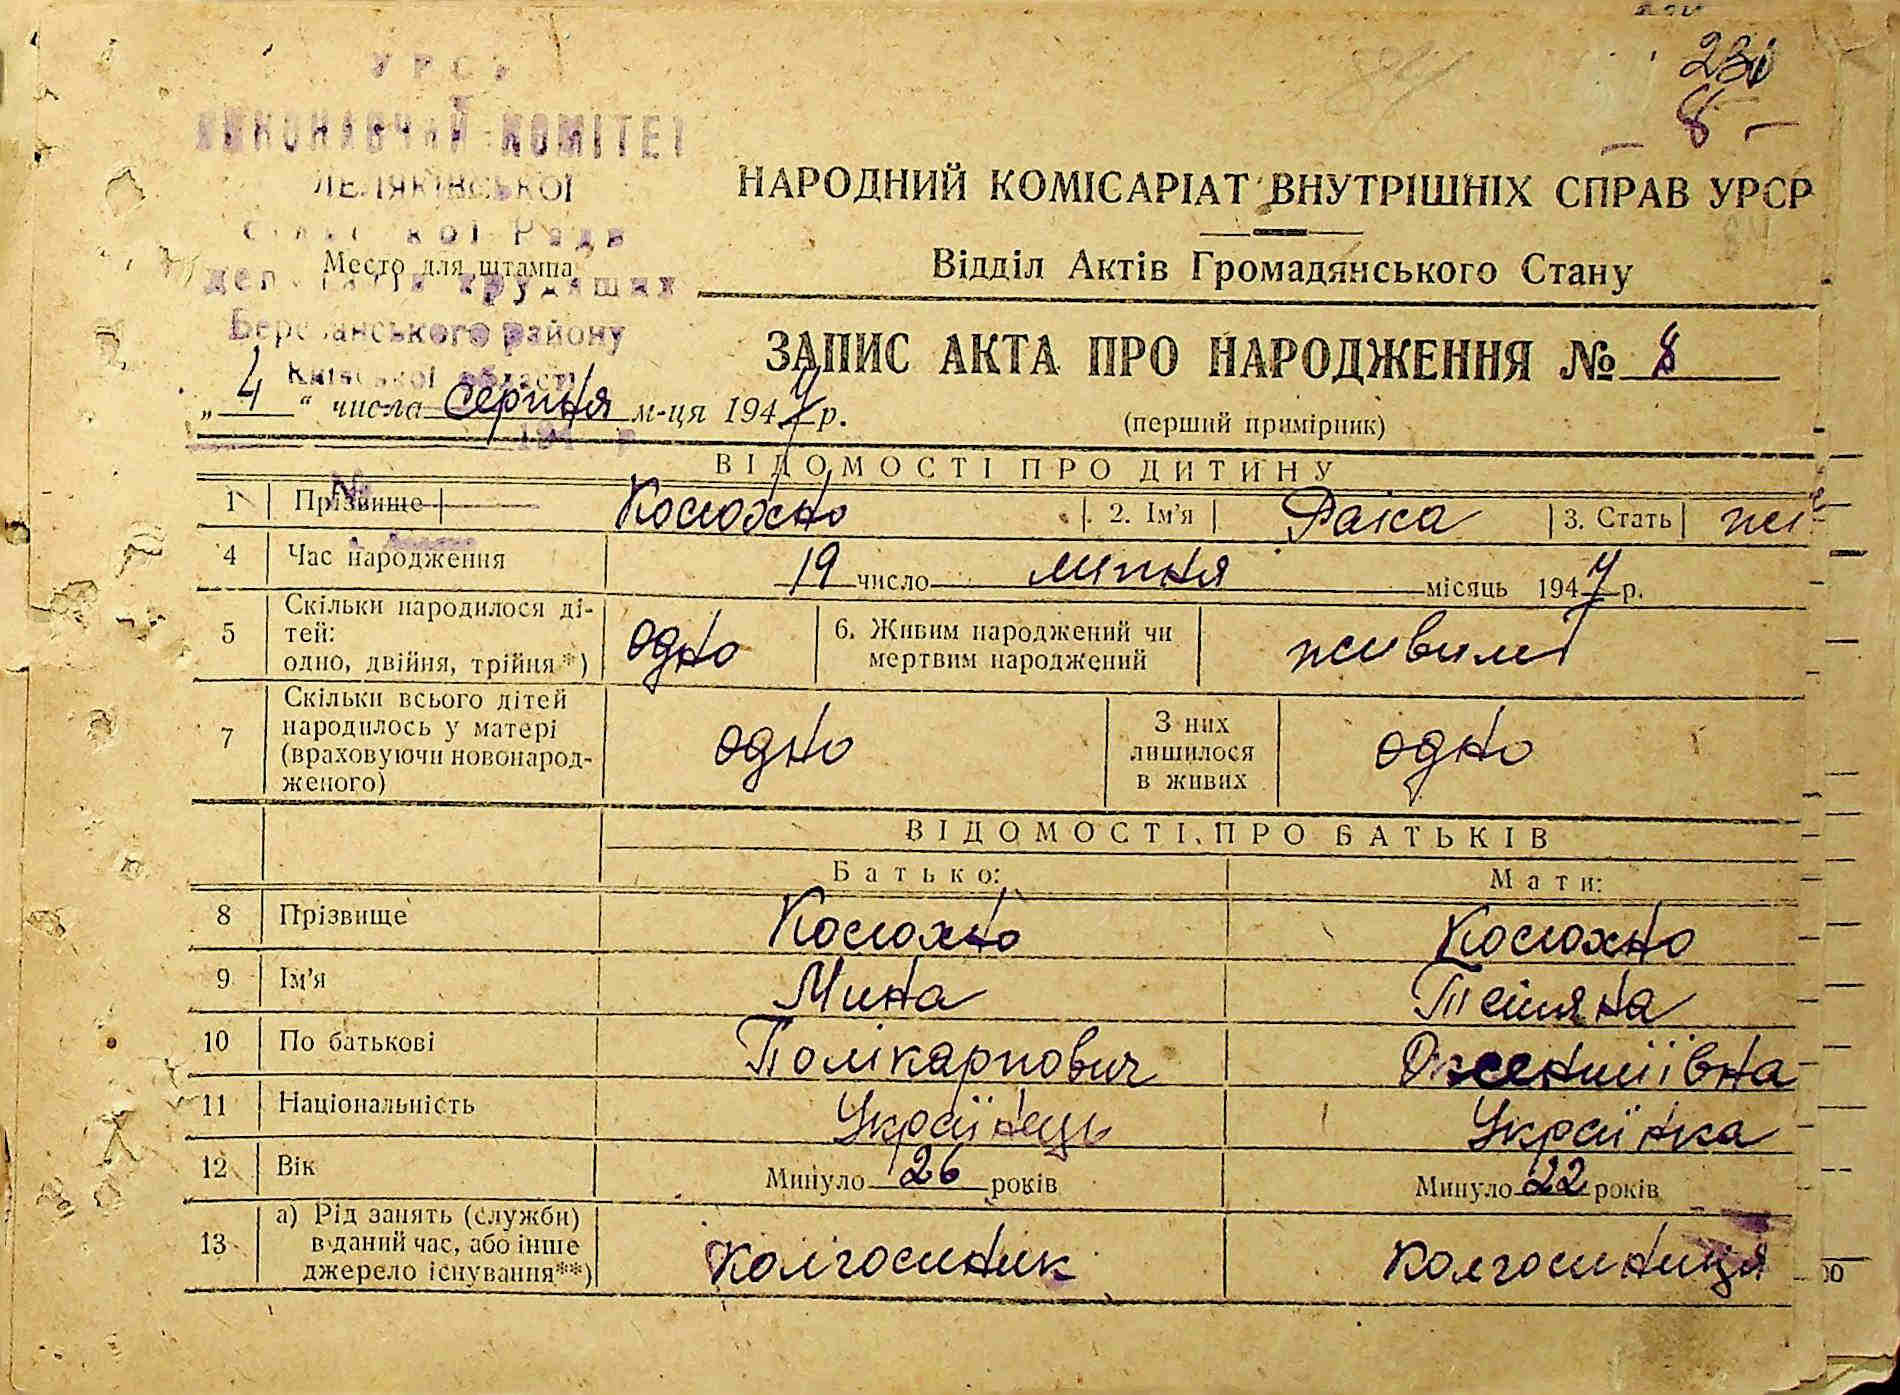 230
- 8 -
УРСР
ВИКОНАВЧИЙ КОМІТЕТ
ЛЕЛЯКІВСЬКОЇ
сільської Ради
депутатів трудящих
Березанського району
Київської області
194 р
№
НАРОДНИЙ КОМІСАРІАТ ВНУТРІШНІХ СПРАВ УРСР
Відділ Актів Громадянського Стану
Место для штампа
ЗАПИС АКТА ПРО НАРОДЖЕННЯ № 8
„ 4 “ числа серпня м-ця 1947 р.
(перший примірник)
ВІДОМОСТІ ПРО ДИТИНУ
1 Прізвище Косюхно 2. Ім'я Раіса 3. Стать
4 Час народження 19 число липня місяць 1947 р.
5 Скільки народилося ді-
тей:
одно, двійня, трійня*) одно
6. Живим народжений чи
мертвим народжений живим
7 Скільки всього дітей
народилось у матері
(враховуючи новонарод-
женого) одно
З них
лишилося
в живих одно
ВІДОМОСТІ ПРО БАТЬКІВ
Батько: Мати:
8 Прізвище Косюхно Косюхно
9 Ім'я Мина Тетяна
10 По батькові Полікарпович
11 Національність Українець Українка
12 Вік Минуло 26 років Минуло 22 років
13 а) Рід занять (служби)
в даний час, або інше
джерело існування**) колгоспник колгоспниця